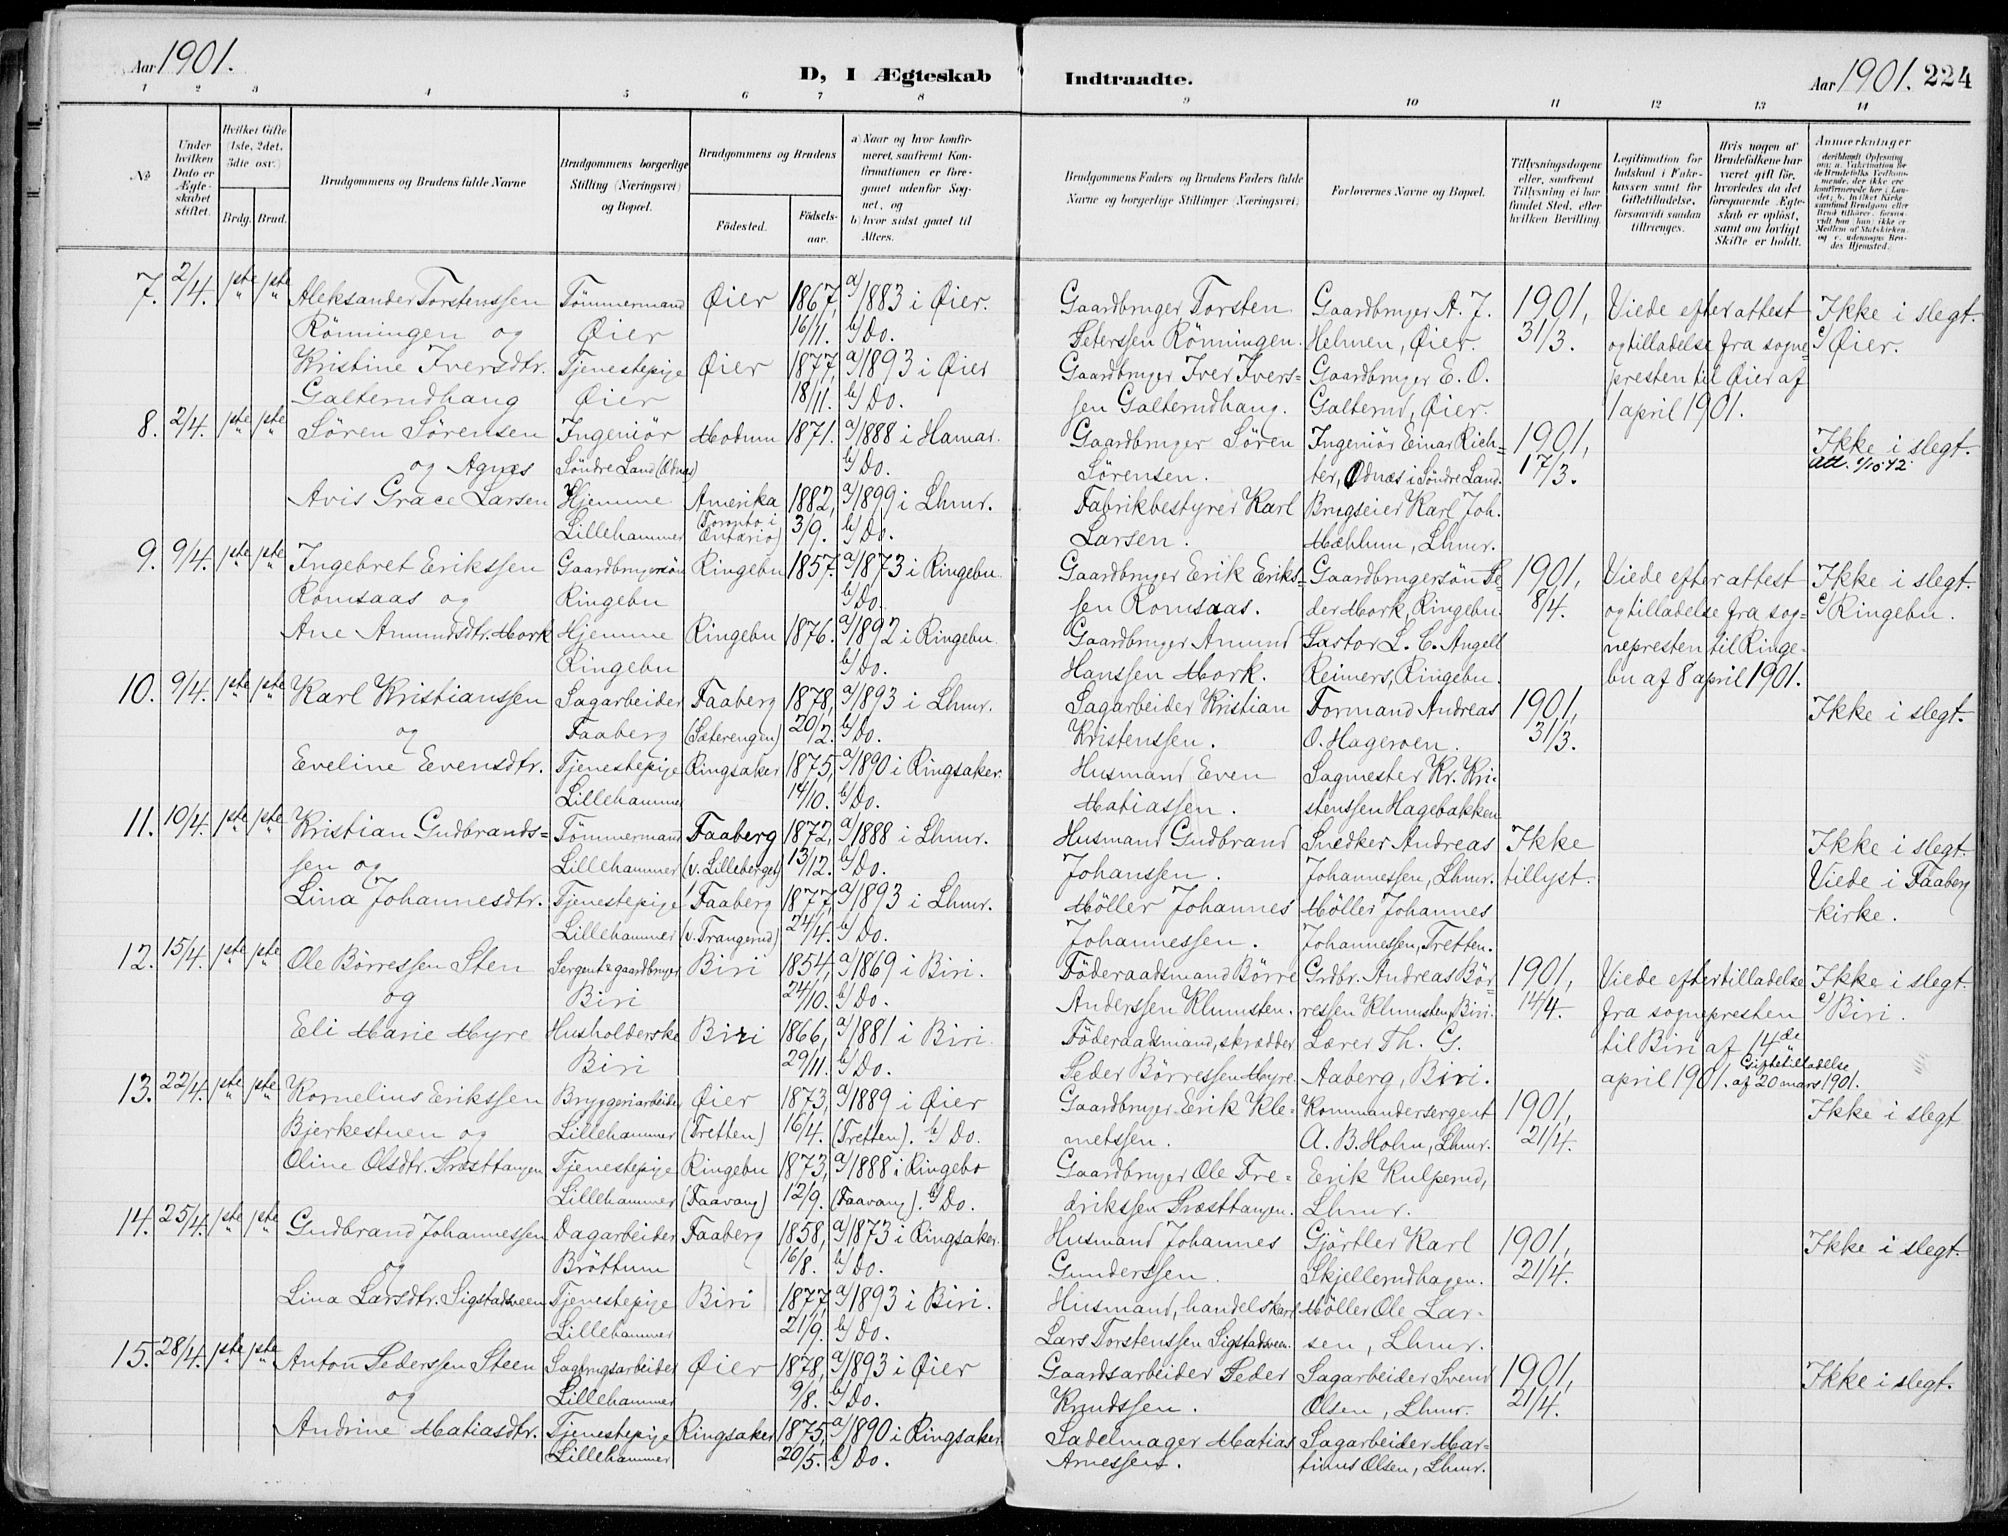 Aar 1901.
D, I Ægteskab Indtraadte.
Aar 1901. 224
1 2 3 4 5 6 7 8 9 10 11 12 13 14
No.
Under hvilken Dato er Ægteskabet stiftet.
Hvilket Gifte (1ste, 2det, 3die osv.)
Brdg. Brud.
Brudgommens og Brudens fulde Navne
Brudgommens borgerlige Stilling (Næringsvei) og Bopæl.
Brudgommens og Brudens
Fødested. Fødselsaar.
a) Naar og hvor konfirmeret, saafremt Konfirmationen er foregaaet udenfor Sognet, og
b) hvor sidst gaaet til Alters.
Brudgommens Faders og Brudens Faders fulde Navne og borgerlige Stillinger (Næringsvei)
Forlovernes Navne og Bopæl.
Tillysningsdagene eller, saafremt Tillysning ei har fundet Sted, efter hvilken Bevilling.
Legitimation for Indskud i Enkekassen samt for Giftetilladelse, forsaavidt saadan tiltrænges.
Hvis nogen af Brudefolkene har været gift før, hvorledes da det foregaaende Ægteskab er opløst, samt om lovligt Skifte er holdt.
Anmærkninger
7. 2/4. 1ste 1ste Aleksander Torstenssen Tömmermand Øier 1867, a/1883 i Øier. Gaardbruger Torsten Gaardbruger A. J. 1901, Viede efter attest Ikke i slegt.
Rönningen og Øier 16/11. b/Do. Peterssen Rönningen. Helmen, Øier. 31/3. og tilladelse fra sogne- c/ Øier.
Kristine Iversdtr. Tjenestepige Øier 1877, a/1893 i Øier Gaardbruger Iver Ivers- Gaardbruger E. O. presten til Øier af
Galterudhaug Øier 18/11. b/Do. sen Galterudhaug. Galterud, Øier. 1 april 1901.
8. 2/4. 1ste 1ste Sören Sörensen Ingeniör Modum 1871. a/1888 i Hamar. Gaardbruger Sören Ingeniör Einar Rich- 1901, Ikke i slegt.
og Agnes Söndre Land (Odnæs) b/Do. Sörensen. ter, Odnæs i Söndre Land. 17/3. Att. 1/10 42
Avis Grace Larsen Hjemme Amerika 1882, a/1899 i Lhmr. Fabrikbestyrer Karl Brugseier Karl Joh.
Lillehammer (Toronto i Ontario) 3/9. b/Do. Larsen. Mæhlum, Lhmr.
9. 9/4. 1ste 1ste Ingebret Erikssen Gaardbrugersön Ringebu 1857. a/1873 i Ringebu. Gaardbruger Erik Eriks- Gaardbrugersön Pe- 1901, Viede efter attest Ikke i slegt.
Romsaas og Ringebu b/Do. sen Romsaas. der Mork, Ringebu. 8/4. og tilladelse fra sog- c/ Ringebu.
Ane Amundsdtr. Mork Hjemme Ringebu 1876. a/1892 i Ringebu. Gaardbruger Amund Pastor L. C. Angell nepresten til Ringe-
Ringebu b/Do. Hanssen Mork. Reimers, Ringebu. bu af 8 april 1901.
10. 9/4. 1ste 1ste Karl Kristianssen Sagarbeider Faaberg 1878, a/1893 i Lhmr. Sagarbeider Kristian Formand Andreas 1901, Ikke i slegt.
og Faaberg (Sæterengen) 20/2. b/Do. Kristenssen. O. Hageroen. 31/3.
Eveline Evensdtr. Tjenestepige Ringsaker 1875, a/1890 i Ringsaker. Husmand Even Sagmester Kr. Kri-
Lillehammer 14/10. b/Do. Matiassen. stenssen Hagebakken
11. 10/4. 1ste 1ste Kristian Gudbrands- Tömmermand Faaberg 1872, a/1888 i Lhmr. Husmand Gudbrand Snedker Andreas Ikke Ikke i slegt.
sen og Lillehammer (v. Lilleberget) 13/12. b/Do. Johanssen. Johannessen, Lhmr. tillyst. Viede i Faaberg
Lina Johannesdtr. Tjenestepige Faaberg 1877, a/1893 i Lhmr. Möller Johannes Möller Johannes kirke.
Lillehammer (v. Trangerud) 24/4. b/Do. Johannessen. Johannessen, Tretten.
12. 15/4. 1ste 1ste Ole Börressen Sten Sergent & gaardbruger Biri 1854, a/1869 i Biri. Föderaadsmand Börre Grdbr. Andreas Bör- 1901, Viede efter tilladelse Ikke i slegt.
og Biri 24/10. b/Do. Anderssen Klumsten. ressen Klumsten, Biri. 14/4. fra sognepresten c/ Biri.
Eli Marie Myre Husholderske Biri 1866, a/1881 i Biri. Föderaadsmand, skrædder Lærer Th. G. til Biri af 14de
Biri 29/11. b/Do. Peder Börressen Myre. Aaberg, Biri. april 1901. Giftetilladelse af 20 mars 1901.
13. 22/4. 1ste 1ste Kornelius Erikssen Bryggeriarbeider Øier 1873, a/1889 i Øier Gaardbruger Erik Kle- Kommandersergent 1901, Ikke i slegt
Bjerkestuen og Lillehammer (Tretten) 16/4. (Tretten). b/Do. metssen. A. B. Holm, Lhmr. 21/4.
Oline Olsdtr. Præsttangen Tjenestepige Ringebu 1873, a/1888 i Ringebo Gaardbruger Ole Fre- Erik Kulperud,
Lillehammer (Faavang) 12/9. (Faavang). b/Do. drikssen Præsttangen. Lhmr.
14. 25/4. 1ste 1ste Gudbrand Johannessen Dagarbeider Faaberg 1858, a/1873 i Ringsaker. Husmand Johannes Gjörtler Karl 1901, Ikke i slegt.
og Bröttum 16/8. b/Do. Gunderssen. Skjellerudhagen. 21/4.
Lina Larsdtr. Sigstadsveen Tjenestepige Biri 1877, a/1893 i Biri. Husmand, handelskarl Möller Ole Lar-
Lillehammer 21/9. b/Do. Lars Torstenssen Sigstadsveen. sen, Lhmr.
15. 28/4. 1ste 1ste Anton Pederssen Steen Sagbrugsarbeider Øier 1878, a/1893 i Øier Gaardsarbeider Peder Sagarbeider Svend 1901, Ikke i slegt.
og Lillehammer 9/8. b/Do. Knudssen. Olsen, Lhmr. 21/4.
Andrine Matiasdtr. Tjenestepige Ringsaker 1875, a/1890 i Ringsaker Sadelmager Matias Sagarbeider Mar-
Lillehammer 20/5. b/Do. Arnessen. tinus Olsen, Lhmr.